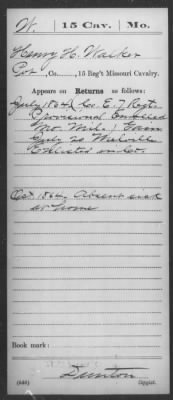 W. 15 Cav. Mo.
Henry H. Walker
Co. 15 Reg't Missouri Cavalry.
Appears on Returns as follows:
July 1864 Co. E. 7 Regt.
Provisional Enrolled
Mo. Mil.
Oct 1864. Absent sick
at home
Book mark:
(646)
Dunton
Copyist.